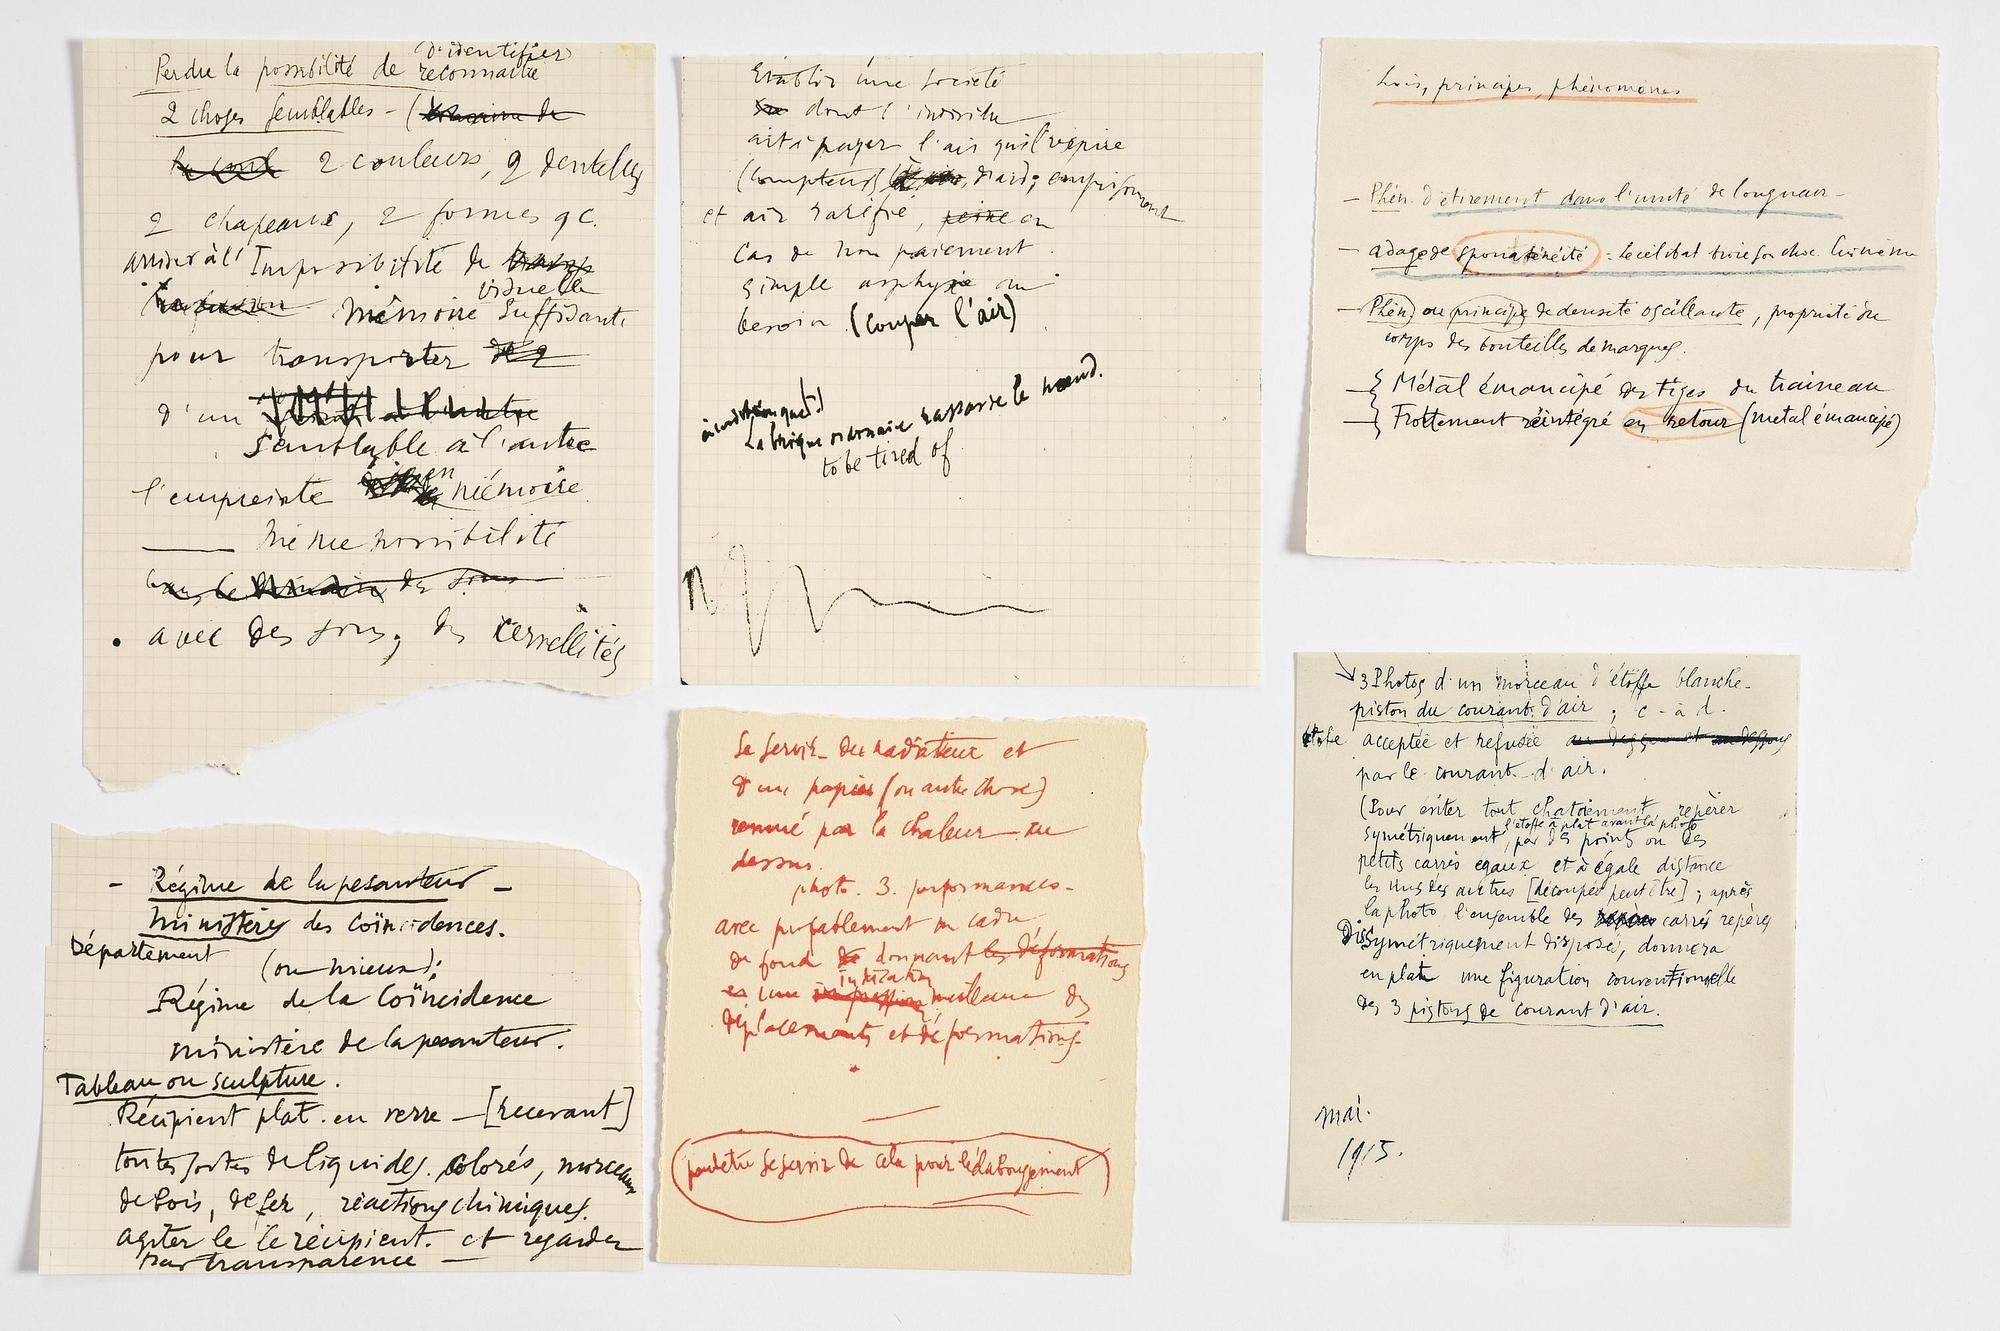 d'identifier
Perdre la possibilité de reconnaître
2 choses semblables – (
2 couleurs, 2 dentelles
2 chapeaux, 2 formes qc.
arriver à l'Impossibilité de
visuelle
mémoire suffisante
pour transporter
d'un
semblable à l'autre
l'empreinte en mémoire.
Même possibilité
avec des sons; des cervellités
Etablir une société
dont l'individu
ait à payer l'air qu'il respire
(compteurs d'air; emprisonnement
et air raréfié, en
cas de non paiement
simple asphyxie au
besoin (couper l'air)
La brique ordinaire rassasie le nœud.
to be tired of
Lois, principes, phénomènes
— Phén. d'étirement dans l'unité de longueur –
— adage de spontanéité =
— Phén) ou principe de densité oscillante, propriété du
corps des bouteilles de marques.
— { Métal émancipé des tiges du traineau
— } Frottement réintégré en retour (metal émancipé)
– Régime de la pesanteur –
Ministères des Coïncidences.
Département
(ou mieux):
Régime de la Coïncidence
ministère de la pesanteur.
Tableau ou sculpture.
Récipient plat en verre – [recevant]
toutes sortes de liquides. colorés, morceaux
de bois, de fer, réactions chimiques.
agiter le le récipient. et regarder
par transparence –
Se servir du radiateur et
d'un papier (ou autre chose)
remué par la chaleur au
dessus.
photo. 3. performances –
avec probablement un cadre
de fond donnant les déformations
une indication meilleure des
déplacements et déformations
peut-être se servir de cela pour l'élabougement
3 Photos d'un morceau d'étoffe blanche –
piston du courant d'air ; c – à d.
étoffe acceptée et refusée au dessus et au dessous
par le courant d'air.
(Pour éviter tout chatoiement repérer
l'étoffe à plat avant la photo
symétriquement, par des points ou des
petits carrés egaux et à égale distance
les uns des autres [découpés peut être] ; après
la photo l'ensemble des carrés repérés
Dissymétriquement disposé, donnera
en plat une figuration conventionnelle
des 3 pistons de courant d'air.
mai.
1915.